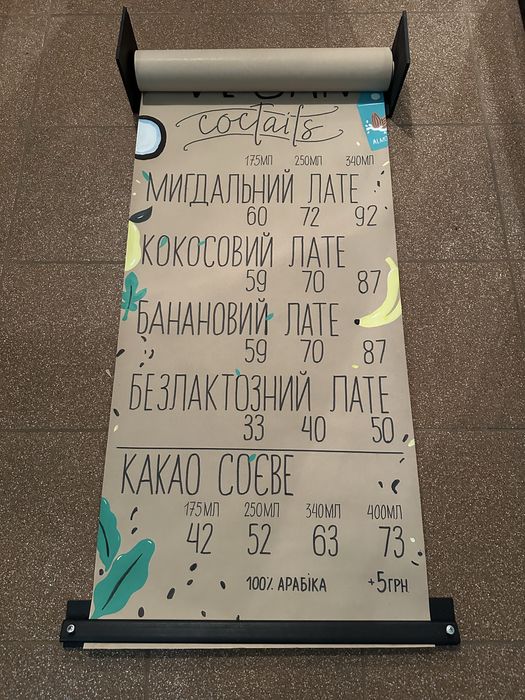 VEGAN
coctails
175МЛ 250МЛ 340МЛ
МИГДАЛЬНИЙ ЛАТЕ
60 72 92
КОКОСОВИЙ ЛАТЕ
59 70 87
БАНАНОВИЙ ЛАТЕ
59 70 87
БЕЗЛАКТОЗНИЙ ЛАТЕ
33 40 50
КАКАО СОЄВЕ
175МЛ 250МЛ 340МЛ 400МЛ
42 52 63 73
100% АРАБІКА +5ГРН